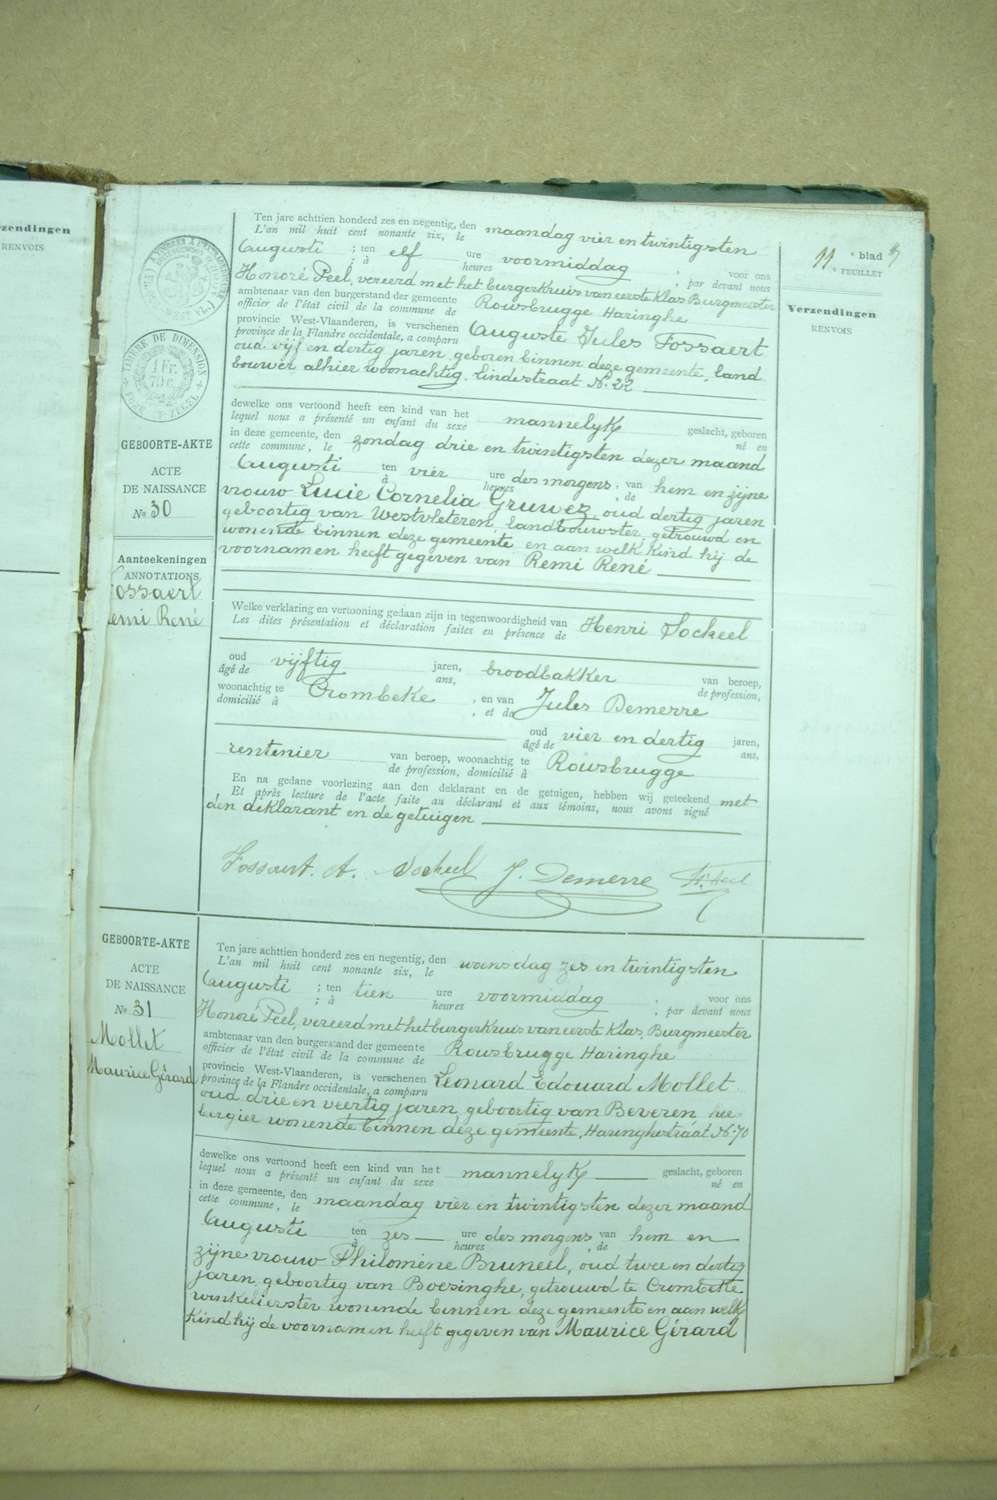 zendingen
RENVOIS
11 e blad
e FEUILLET
Verzendingen
RENVOIS
TIMBRE DE DIMENSION
1 Fr.
GEBOORTE-AKTE
ACTE
DE NAISSANCE
No 30
Aanteekeningen
ANNOTATIONS
Fossaert
Remi René
Ten jare achttien honderd zes en negentig, den maandag vier en twintigsten
L'an mil huit cent nonante six, le
Augusti ; ten elf ure voormiddag ; voor ons
; à heures ; par devant nous
Honoré Peel, vereerd met het burgerkruis van eerste klas Burgmeester
ambtenaar van den burgerstand der gemeente Rousbrugge Haringhe
officier de l'état civil de la commune de
provincie West-Vlaanderen, is verschenen Auguste Jules Fossaert
province de la Flandre occidentale, a comparu
oud vijf en dertig jaren, geboren binnen deze gemeente, land
bouwer alhier woonachtig, Lindestraat No 22
dewelke ons vertoond heeft een kind van het mannelyk geslacht, geboren
lequel nous a présenté un enfant du sexe né en
in deze gemeente, den zondag drie en twintigsten dezer maand
cette commune, le
Augusti ten vier ure des morgens, van hem en zijne
à heures , de
vrouw Lucie Cornelia Gruwez oud dertig jaren
geboortig van Westvleteren, landbouwster, getrouwd en
wonende binnen deze gemeente en aan welk kind hij de
voornamen heeft gegeven van Remi René
Welke verklaring en vertooning gedaan zijn in tegenwoordigheid van Henri Sockeel
Les dites présentation et déclaration faites en présence de
oud vijftig jaren, broodbakker van beroep,
âgé de ans, de profession,
woonachtig te Crombeke , en van Jules Demerre
domicilié à , et de
oud vier en dertig jaren,
âgé de ans,
rentenier van beroep, woonachtig te Rousbrugge
de profession, domicilié à
En na gedane voorlezing aan den deklarant en de getuigen, hebben wij geteekend met
Et après lecture de l'acte faite au déclarant et aux témoins, nous avons signé
den deklarant en de getuigen
Fossaert. A. Sockeel J. Demerre H. Peel
GEBOORTE-AKTE
ACTE
DE NAISSANCE
No 31
Mollet
Maurice Gérard
Ten jare achttien honderd zes en negentig, den woensdag zes en twintigsten
L'an mil huit cent nonante six, le
Augusti ; ten tien ure voormiddag ; voor ons
; à heures ; par devant nous
Honoré Peel, vereerd met het burgerkruis van eerste klas, Burgmeester
ambtenaar van den burgerstand der gemeente Rousbrugge Haringhe
officier de l'état civil de la commune de
provincie West-Vlaanderen, is verschenen Leonard Edouard Mollet
province de la Flandre occidentale, a comparu
oud drie en veertig jaren, geboortig van Beveren her
bergier wonende binnen deze gemeente, Haringhestraat No 70
dewelke ons vertoond heeft een kind van het mannelyk geslacht, geboren
lequel nous a présenté un enfant du sexe né en
in deze gemeente, den maandag vier en twintigsten dezer maand
cette commune, le
Augusti ten zes ure des morgens van hem en
à heures , de
zijne vrouw Philomène Bruneel, oud twee en dertig
jaren, geboortig van Boesinghe, getrouwd te Crombeke
winkelierster wonende binnen deze gemeente en aan welk
kind hij de voornamen heeft gegeven van Maurice Gérard